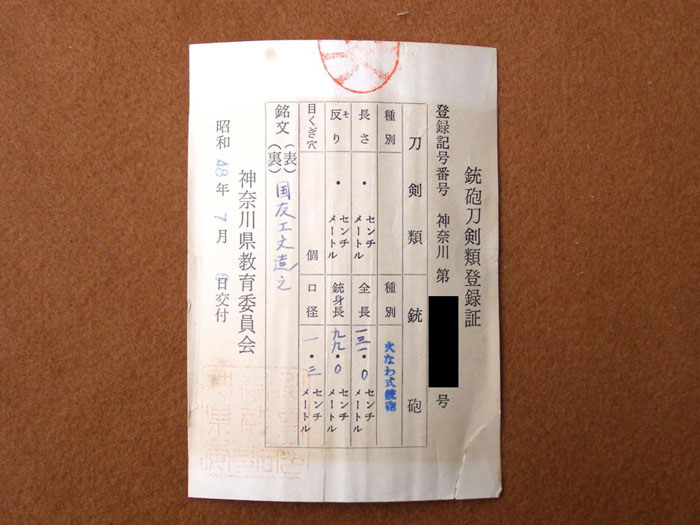 銃砲刀剣類登録証
登録記号番号 神奈川 第 号
刀剣類 銃砲
種別 種別 火なわ式銃砲
長さ ・ センチメートル 全長 一三一・0 センチメートル
反り ソ ・ センチメートル 銃身長 九九・0 センチメートル
目くぎ穴 個 口径 一・三 センチメートル
銘文 (表) 国友工丈造之
(裏)
神奈川県教育委員会
昭和 48年 7月 日交付